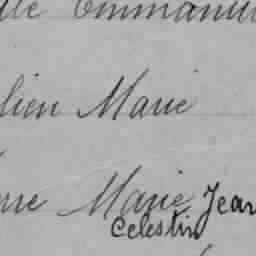 Emmanuel
lien Marie
rre Marie Jean
Celestin